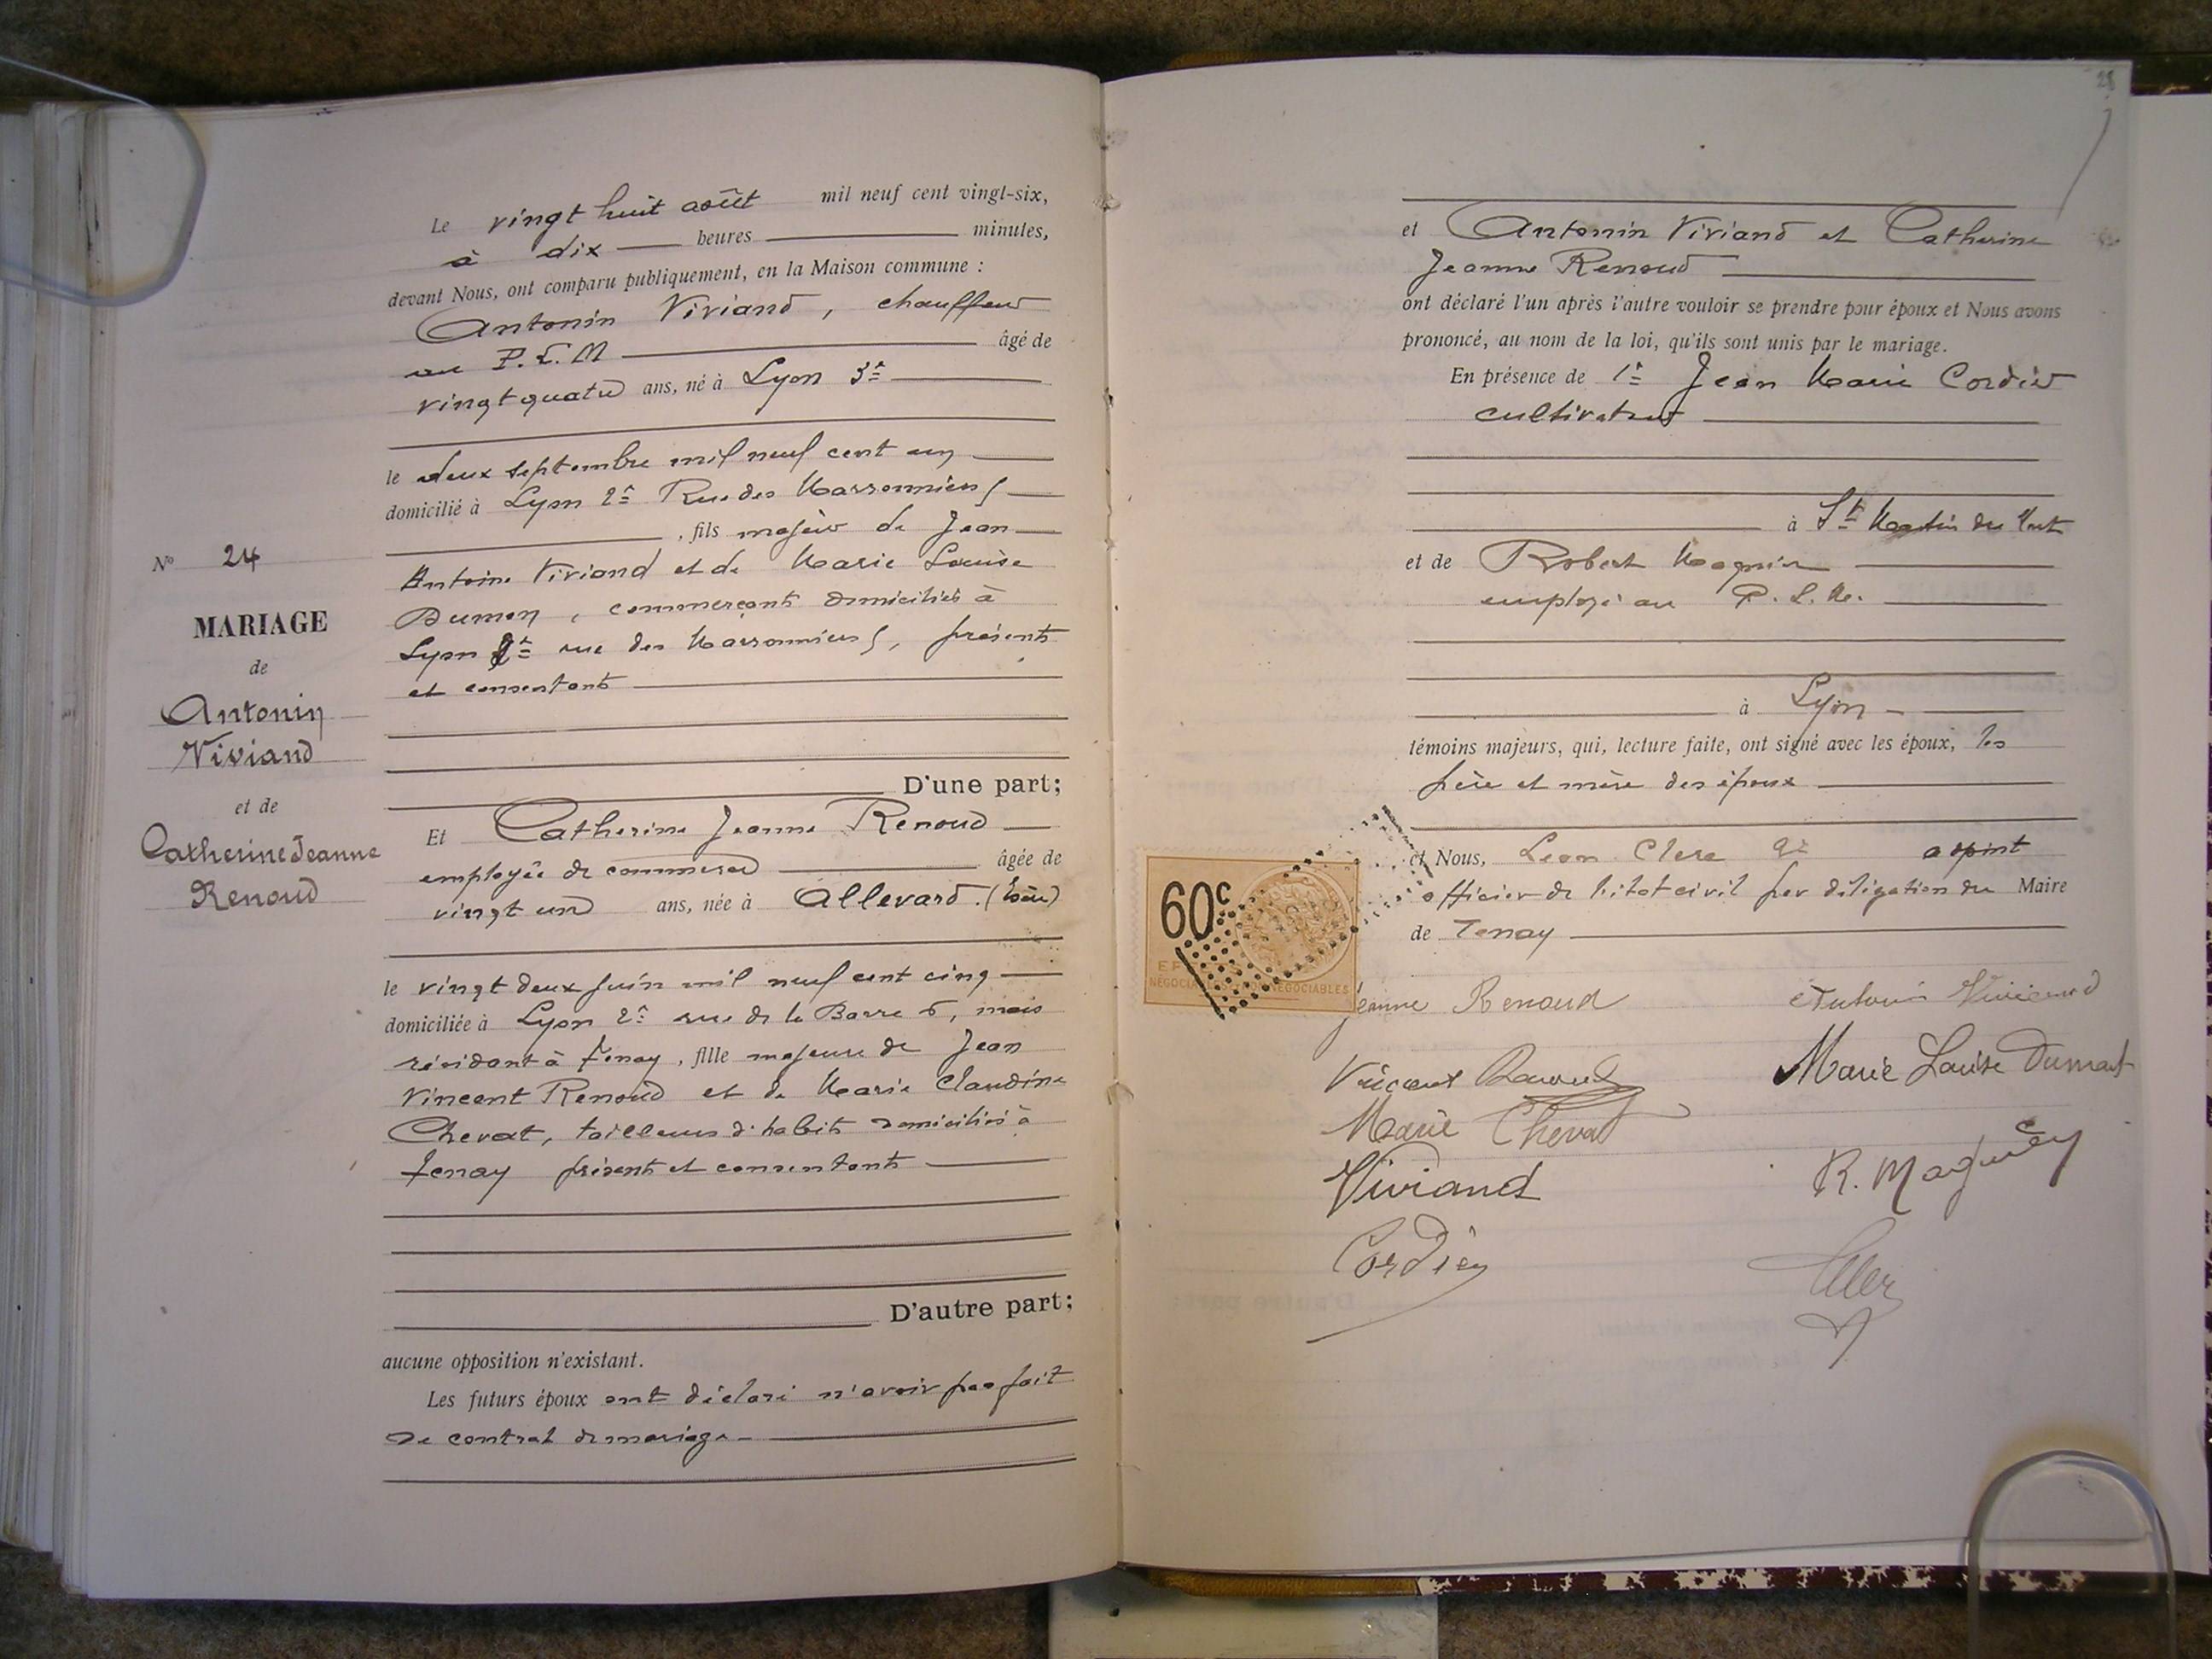 Nº 24
MARIAGE
de
Antonin
Viviand
et de
Catherine Jeanne
Renoud
Le vingt huit août mil neuf cent vingt-six,
à dix heures minutes,
devant Nous, ont comparu publiquement, en la Maison commune :
Antonin Viviand, chauffeur
au P.L.M âgé de
vingt quatre ans, né à Lyon 3e
le deux septembre mil neuf cent un
domicilié à Lyon 2e Rue des Marronniers
, fils majeur de Jean
Antoine Viviand et de Marie Louise
Dumon, commerçants domiciliés à
Lyon 2e rue des Marronniers, présents
et consentants
D'une part;
Et Catherine Jeanne Renoud
employée de commerce âgée de
vingt un ans, née à Allevard. (Isère)
le vingt deux juin mil neuf cent cinq
domiciliée à Lyon 2e rue de la Barre 6, mais
résidant à Tenay, fille majeure de Jean
Vincent Renoud et de Marie Claudine
Chevat, tailleurs d'habits domiciliés à
Tenay présents et consentants
D'autre part;
aucune opposition n'existant.
Les futurs époux ont déclaré n'avoir pas fait
de contrat de mariage
28
et Antonin Viviand et Catherine
Jeanne Renoud
ont déclaré l'un après l'autre vouloir se prendre pour époux et Nous avons
prononcé, au nom de la loi, qu'ils sont unis par le mariage.
En présence de 1e Jean Marie Cordier
cultivateur
à St Martin du Mont
et de Robert Magnien
employé au P.L.M.
à Lyon
témoins majeurs, qui, lecture faite, ont signé avec les époux, les
père et mère des époux
et Nous, Léon Clerc adjoint
officier de l'état civil par délégation du Maire
de Tenay
60c
NÉGOCIABLES
Jeanne Renoud Antonin Viviand
Vincent Renoud Marie Louise Dumont
Marie Chevat
Viviand
Cordier